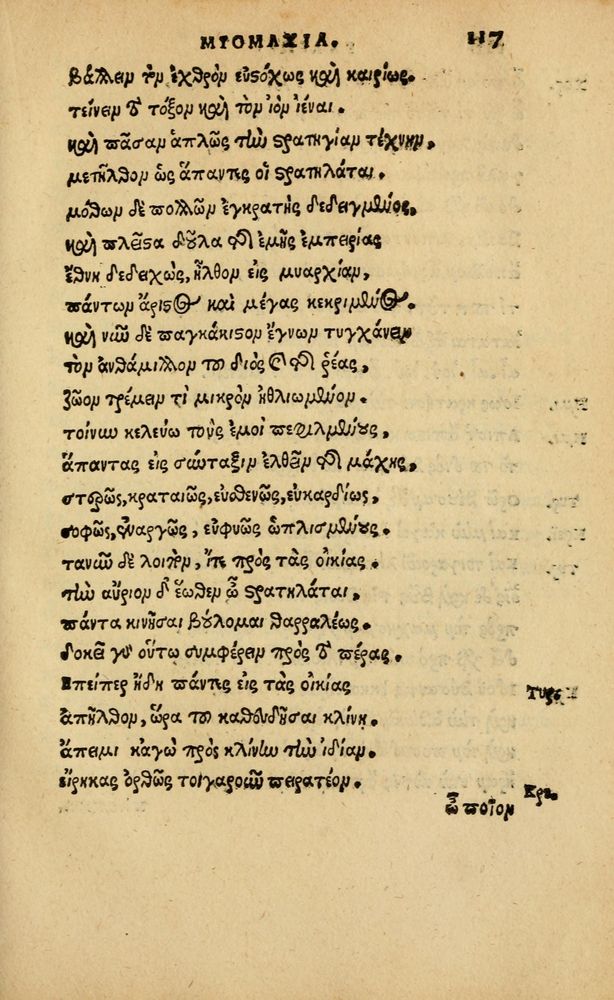 ΜΥΟΜΑΧΙΑ. 117
βάλλειν τὸν ἐχθρὸν εὐστόχως καὶ καιρίως.
τείνειν τὸ τόξον καὶ τὸν ἰὸν ἱέναι.
καὶ πᾶσαν ἁπλῶς τὴν στρατηγίαν τέχνην.
μετῆλθον ὡς ἅπαντες οἱ στρατηλάται.
μόθων δὲ πολλῶν ἐγκρατὴς δεδειγμένος.
καὶ πλεῖστα δοῦλα τῆς ἐμῆς ἐμπειρίας
ἔθνη δεδειχὼς, ἦλθον εἰς μοναρχίαν,
πάντων ἄριστος καὶ μέγας κεκριμένος.
καὶ νῦν δὲ παγκάκιστον ἔγνων τυγχάνειν
τὸν ἀνθάμιλλον τοῦ διὸς καὶ τῆς ῥέας,
ζῶον τρέμειν τὶ μικρὸν ἠθλιωμένον.
τοίνυν κελεύω τοὺς ἐμοὶ πεφιλμένους,
ἅπαντας εἰς σύνταξιν ἐλθεῖν τῆς μάχης,
στερρῶς, κραταιῶς, εὐσθενῶς, εὐκαρδίως,
σοφῶς, ἐναργῶς, εὐφυῶς ὡπλισμένους.
τανῦν δὲ λοιπὸν, ἴτε πρὸς τὰς οἰκίας.
τὴν αὔριον δ' ἕωθεν ὦ στρατηλάται,
πάντα κινῆσαι βούλομαι θαρραλέως.
δοκεῖ γὰρ οὕτω συμφέρειν πρὸς τὸ πέρας.
Ἐπείπερ ἤδη πάντες εἰς τὰς οἰκίας Τυρο
ἀπῆλθον, ὥρα τοῦ καθευδῆσαι κλίνῃ.
ἄπειμι κἀγὼ πρὸς κλίνην τὴν ἰδίαν.
εἴρηκας ὀρθῶς τοιγαροῦν περατέον. Κρε.
ὦ ποῖον